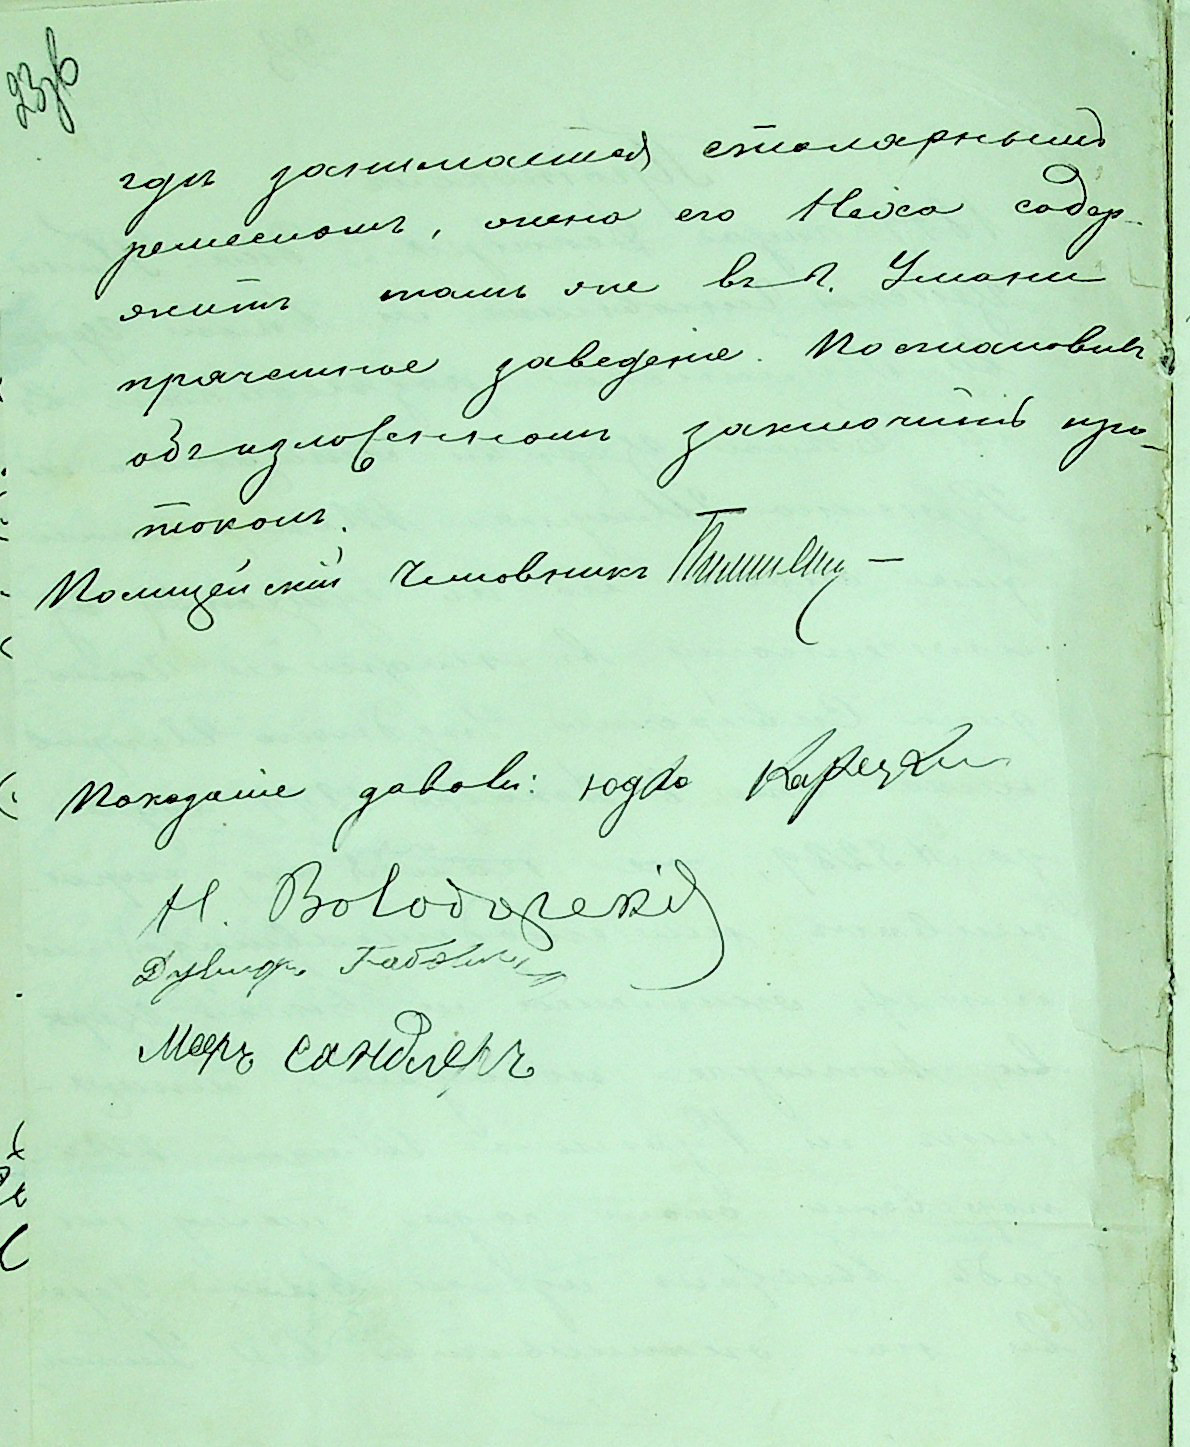 гдѣ занимается столярнымъ
ремесломъ, жена его Нейса содер-
житъ тамъ же въ г. Умани
прачешное заведеніе. Постановилъ
объ изложенномъ заключить про-
токолъ.
Полицейскій Чиновникъ
Показаніе давали: Юдко Карецкий
Н. Володарскій
Мееръ Сандлеръ